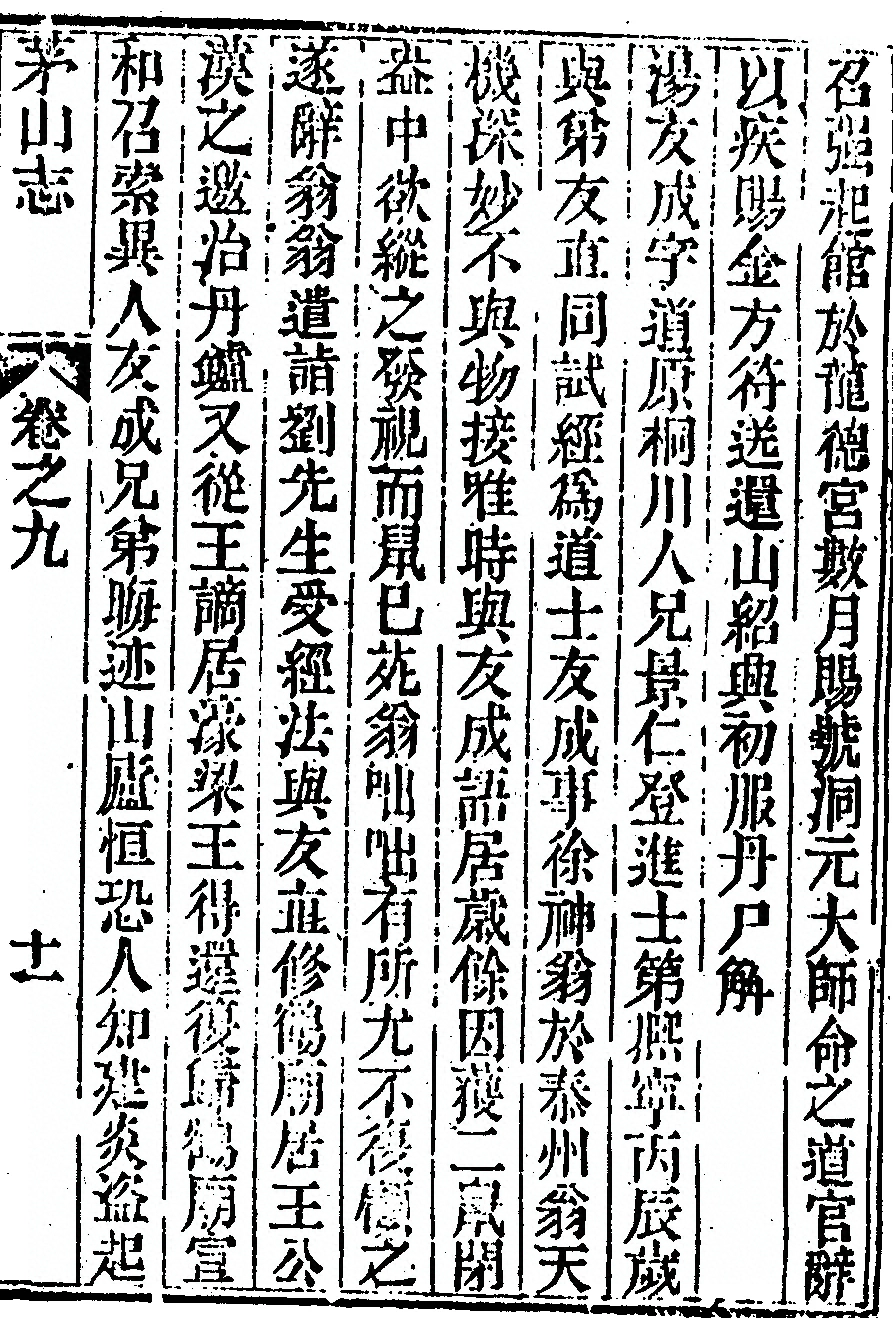 召强起館於龍德宮數月賜號洞元大師命之道官辭
以疾賜金方符送還山紹興初服丹尸解
湯友成字道原桐川人兄景仁登進士第熙寧丙辰歲
與弟友直同試經爲道士友成事徐神翁於泰州翁天
機深妙不與物接唯時與友成語居歲餘因獲二鼠閉
盎中欲縱之發視而鼠已死翁咄咄有所尤不復顧之
遂辭翁翁遣詣劉先生受經法與友直修鶴廟居王公
漢之邀治丹爐又從王謫居濠梁王得還復歸鶴廟宣
和召索異人友成兄弟晦迹山廬恒恐人知建炎盜起
茅山志 卷之九 十一